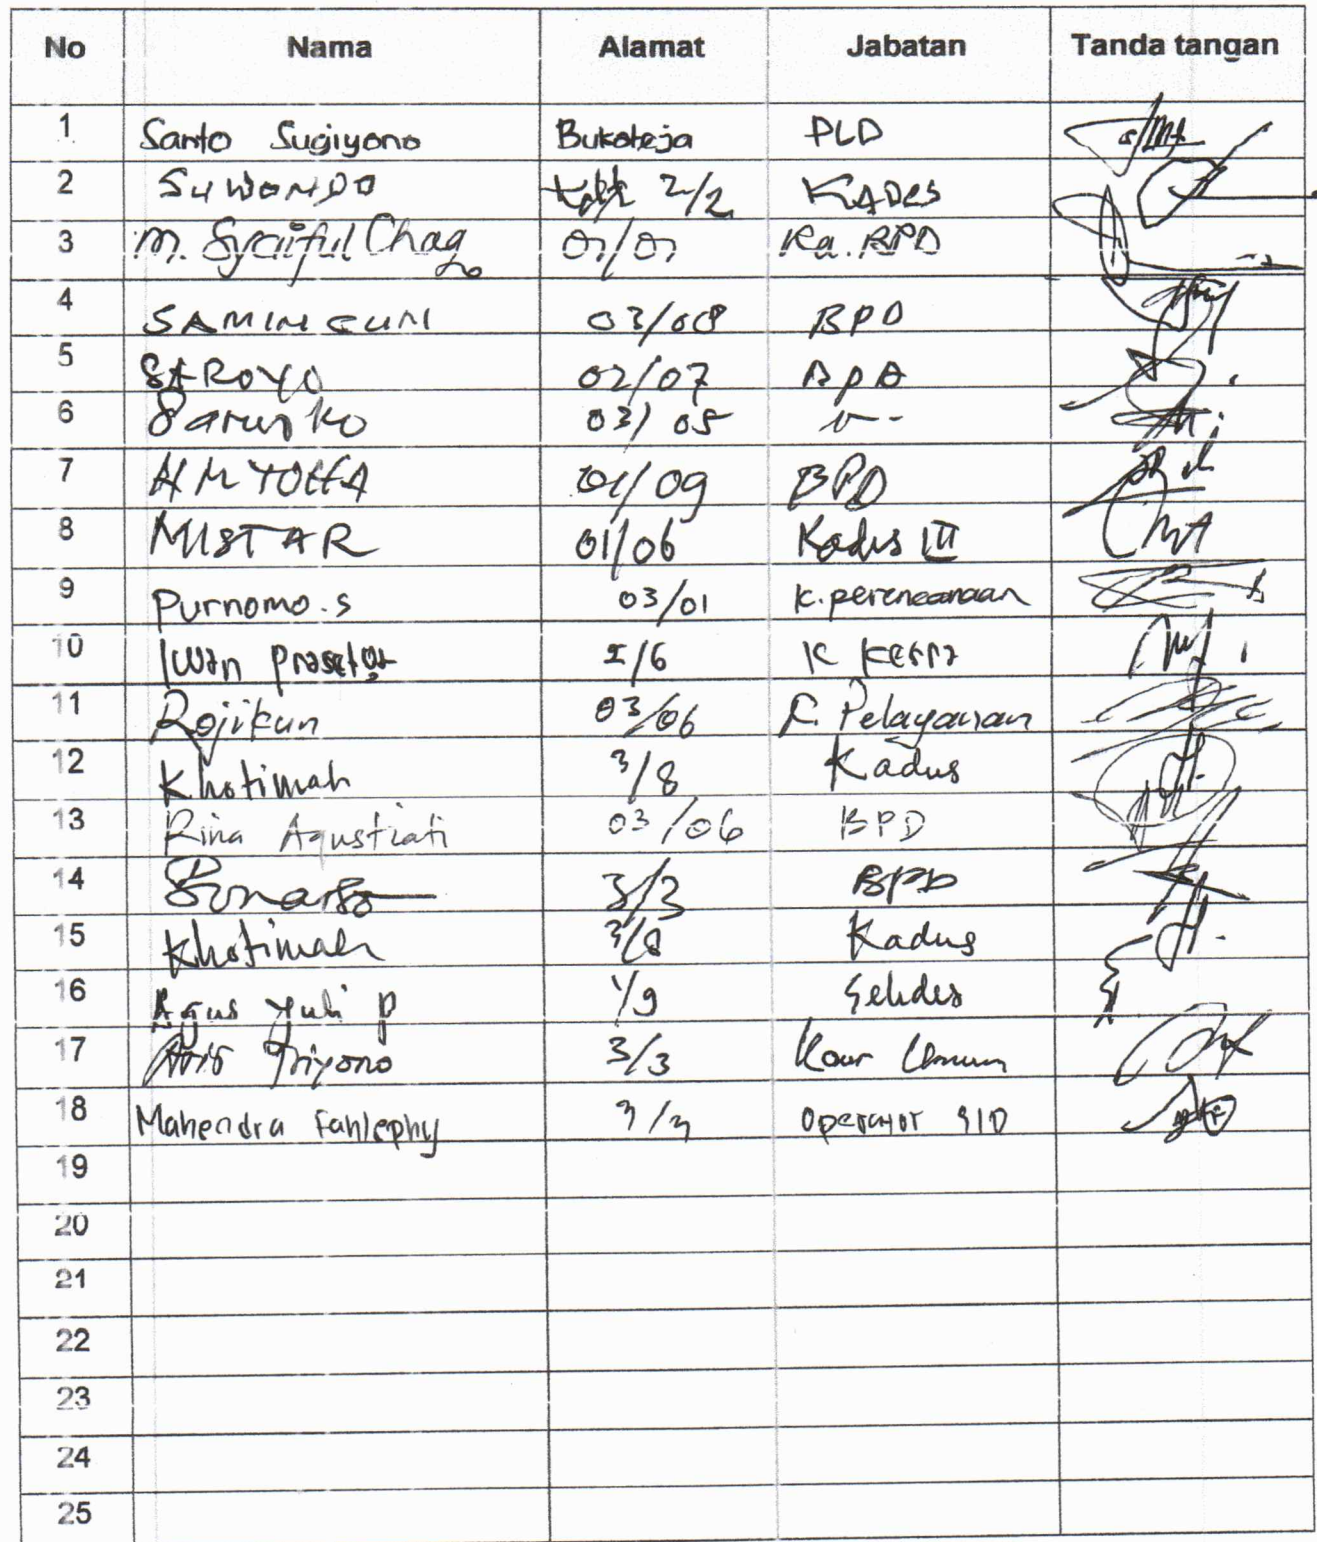 No Nama Alamat Jabatan Tanda tangan
1 Santo Sugiyono Bukateja PLD
2 SUWONDO 2/2 KADES
3 M. Syaiful Chaq 01/01 Ka. BPD
4 SAMINGUN 03/08 BPD
5 SAROYO 02/07 BPD
6 03/05
7 01/09 BPD
8 MISTAR 01/06 Kadus III
9 Purnomo.s 03/01 K.perencanaan
10 Iwan Prasetyo 1/6 K Kesra
11 Rojikun 03/06 K. Pelayanan
12 Khotimah 3/8 Kadus
13 Rina Agustiati 03/06 BPD
14 Sunarso 3/3 BPD
15 Khotimah 3/8 Kadus
16 Agus Yuli P 1/9 Sekdes
17 Aris Triyono 3/3 Kaur Umum
18 Mahendra Fahlephy 3/3 Operator SID
19
20
21
22
23
24
25